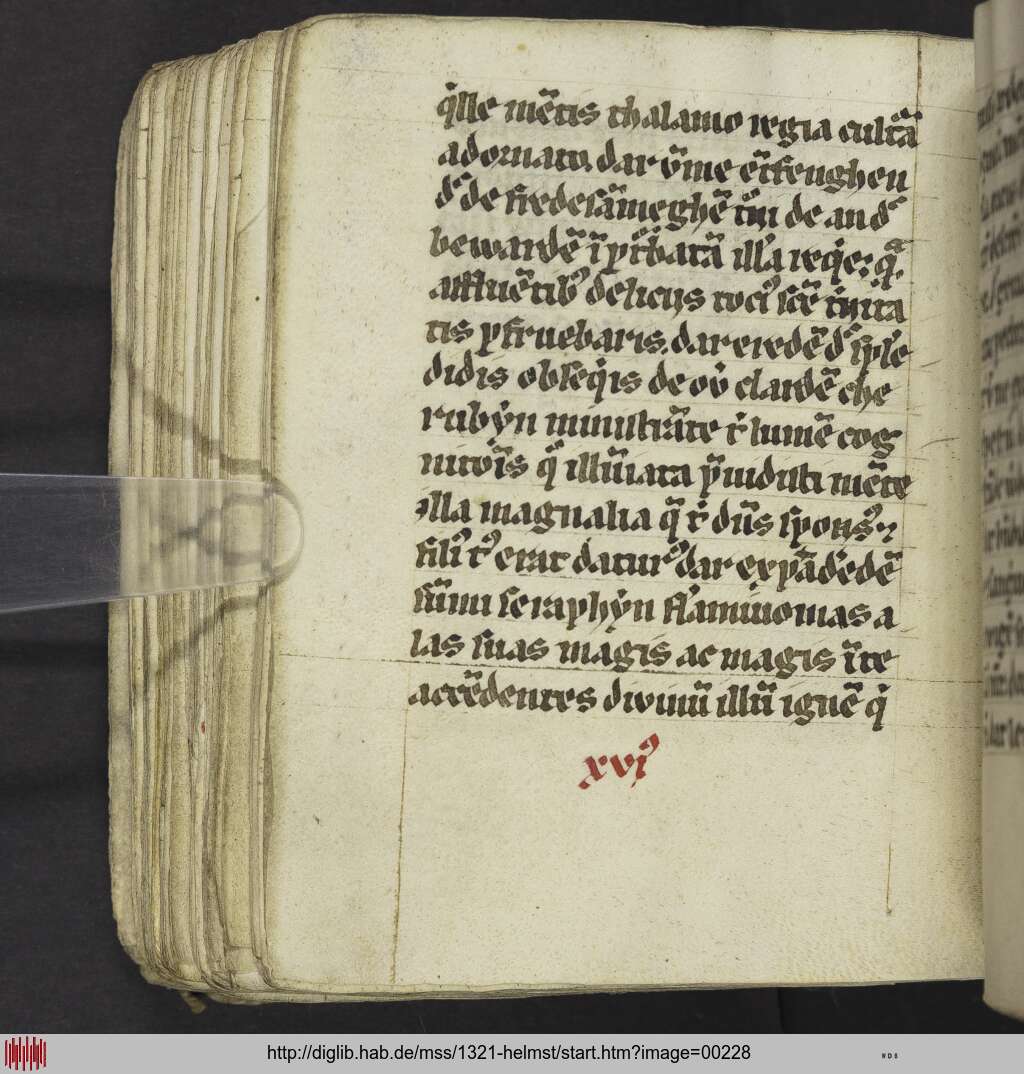 q̇lle mētis thalamo regia cultā
adornato dar v̄me ētfenghen
d᷒ de fredesāmeghē tūn de and᷒
bewardē ī ꝑt̄batā ill᷒a req̇e; q̄
affluētib᷒ deliciis toci᷒ scē ṫnita
tis ꝑfruebaris. dar eredē d᷒ sple
didis obseq̇is de ov̇ clardē che
rubẏn ministrāte ṫ lumē cog
nitoīs q̄ illūiata p̄uidisti mēte
illa magnalia q̄ ṫ dn̄s spons᷒
fili᷒ t᷒ erat datur᷒ dar expādedē
sūmi seraphẏn flāmiuomas a
las suas magis ac magis īte
accēdentes diuinū illū ignē q̇
xvi᷒
http://diglib.hab.de/mss/1321-helmst/start.htm?image=00228